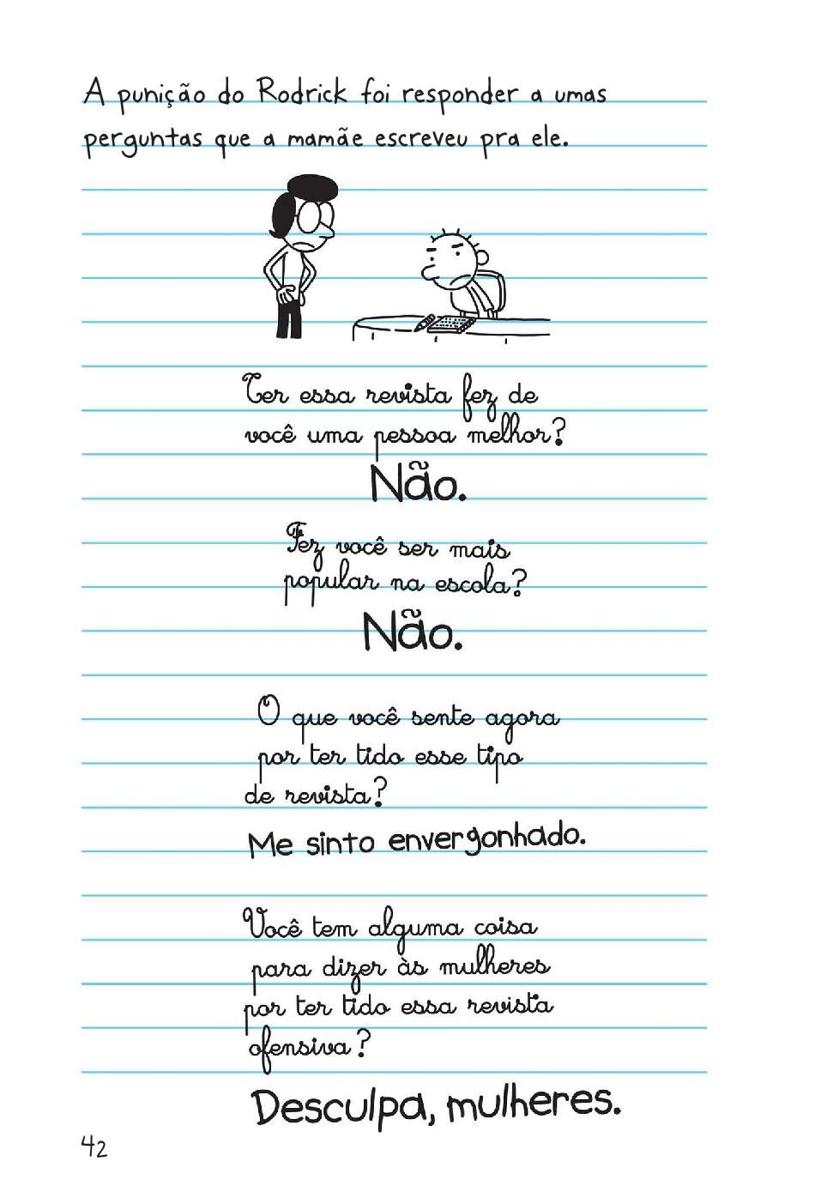 A punição do Rodrick foi responder a umas
perguntas que a mamãe escreveu pra ele.
Ter essa revista fez de
você uma pessoa melhor?
Não.
Fez você ser mais
popular na escola?
Não.
O que você sente agora
por ter tido esse tipo
de revista?
Me sinto envergonhado.
Você tem alguma coisa
para dizer às mulheres
por ter tido essa revista
ofensiva?
Desculpa, mulheres.
42